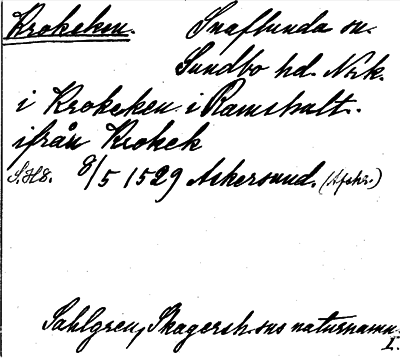 Krokeken. Snaflunda sn.
Sundbo hd. Nrk.
i Krokeken i Ramshult.
ifrån Krokek
S.H8. 8/5 1529 Askersund. (Afskr.)
Sahlgren, Skagersh. sns naturnamn
I.